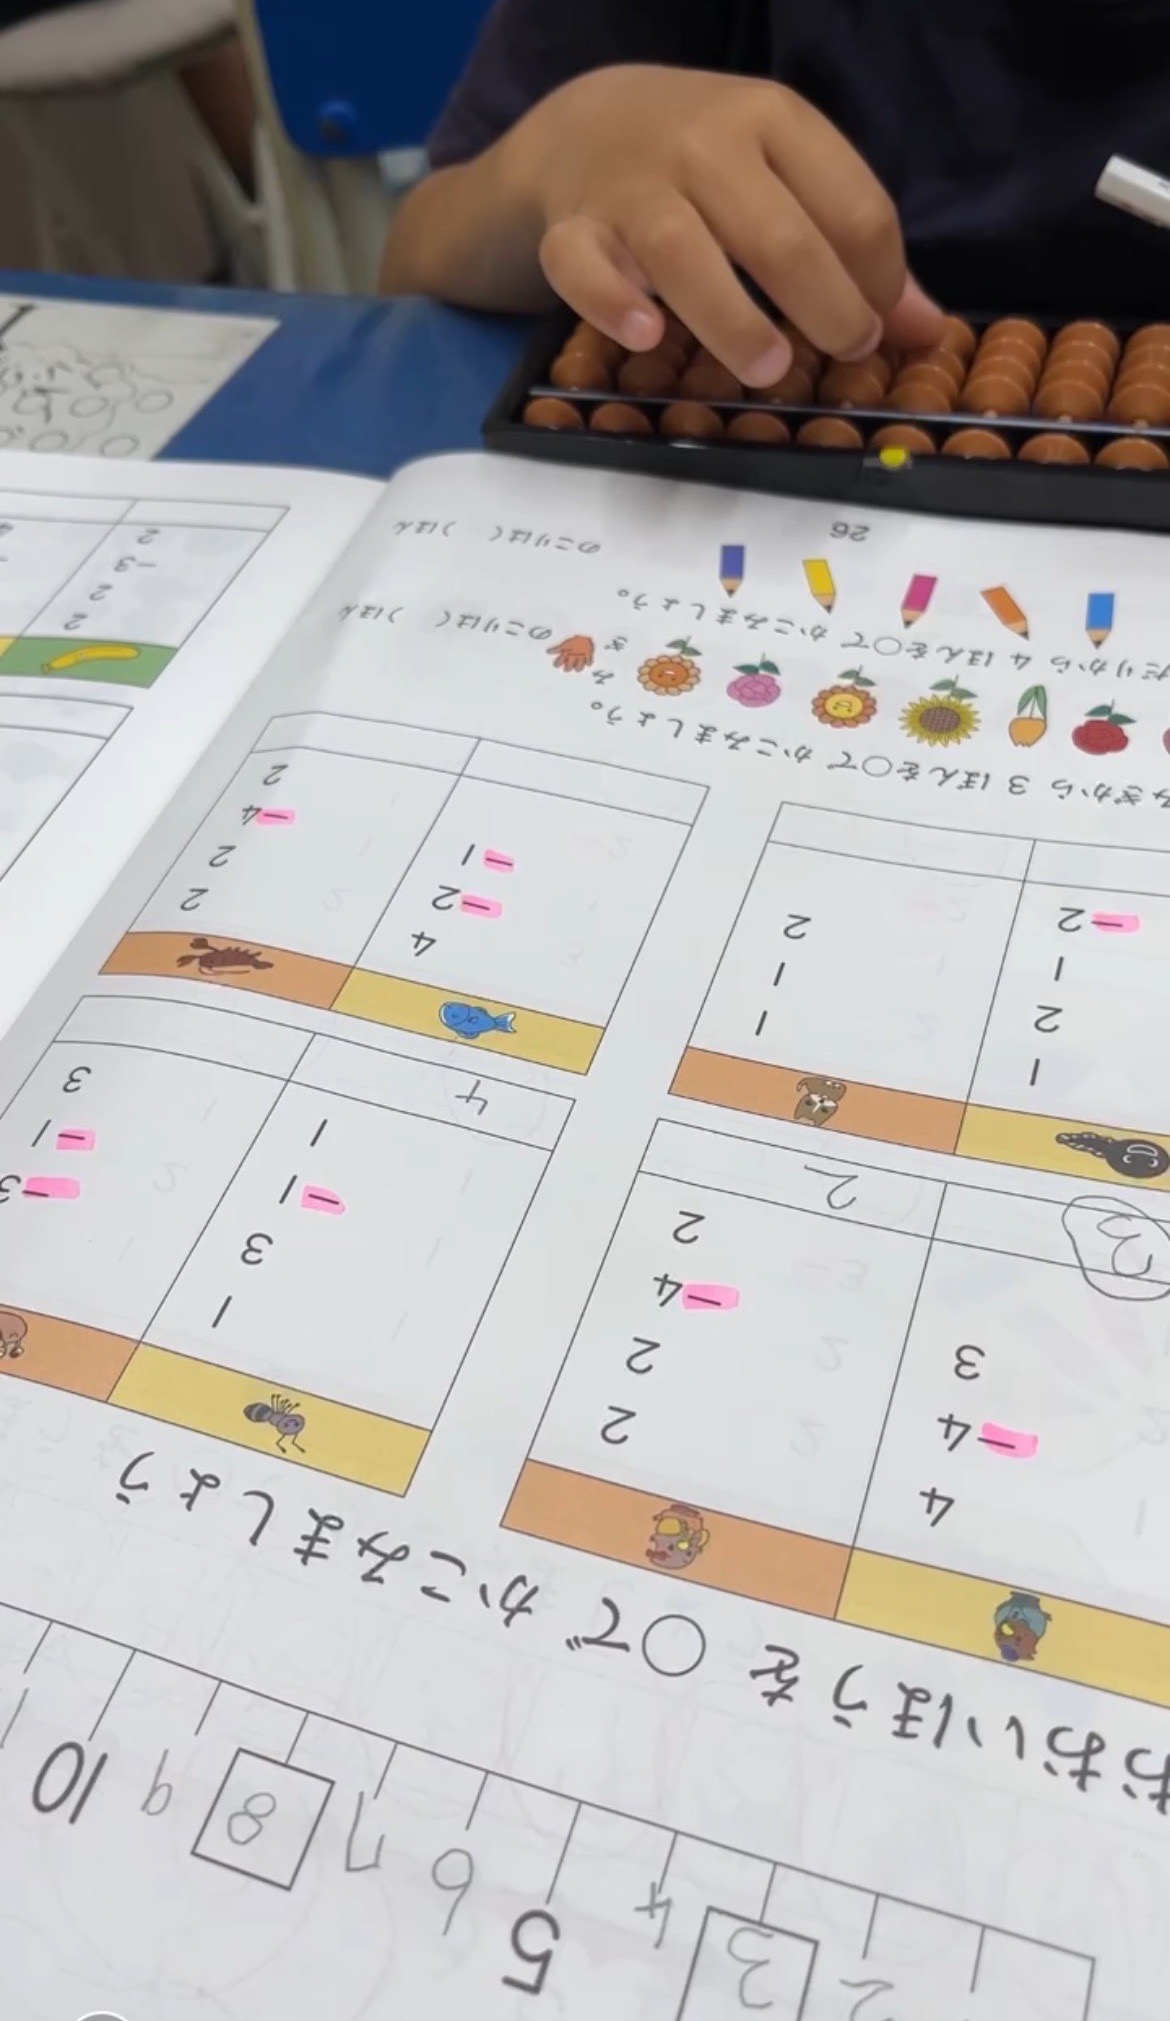 2 3 4 5 6 7 8 9 10
おおいほうを ○で かこみましょう
4 2 1
-4 2 3 -3
3 -4 -1 -1
2 1 3
3 2 4
1 1 4 2
2 1 -2 2
1 2 -1 -4
-2 2
みぎから 3 ぼんを○で かこみましょう。
みぎ
のこりは( )ほん
だりから 4 ほんを○で かこみましょう。
のこりは( )ほん
26
2
2
-3
2